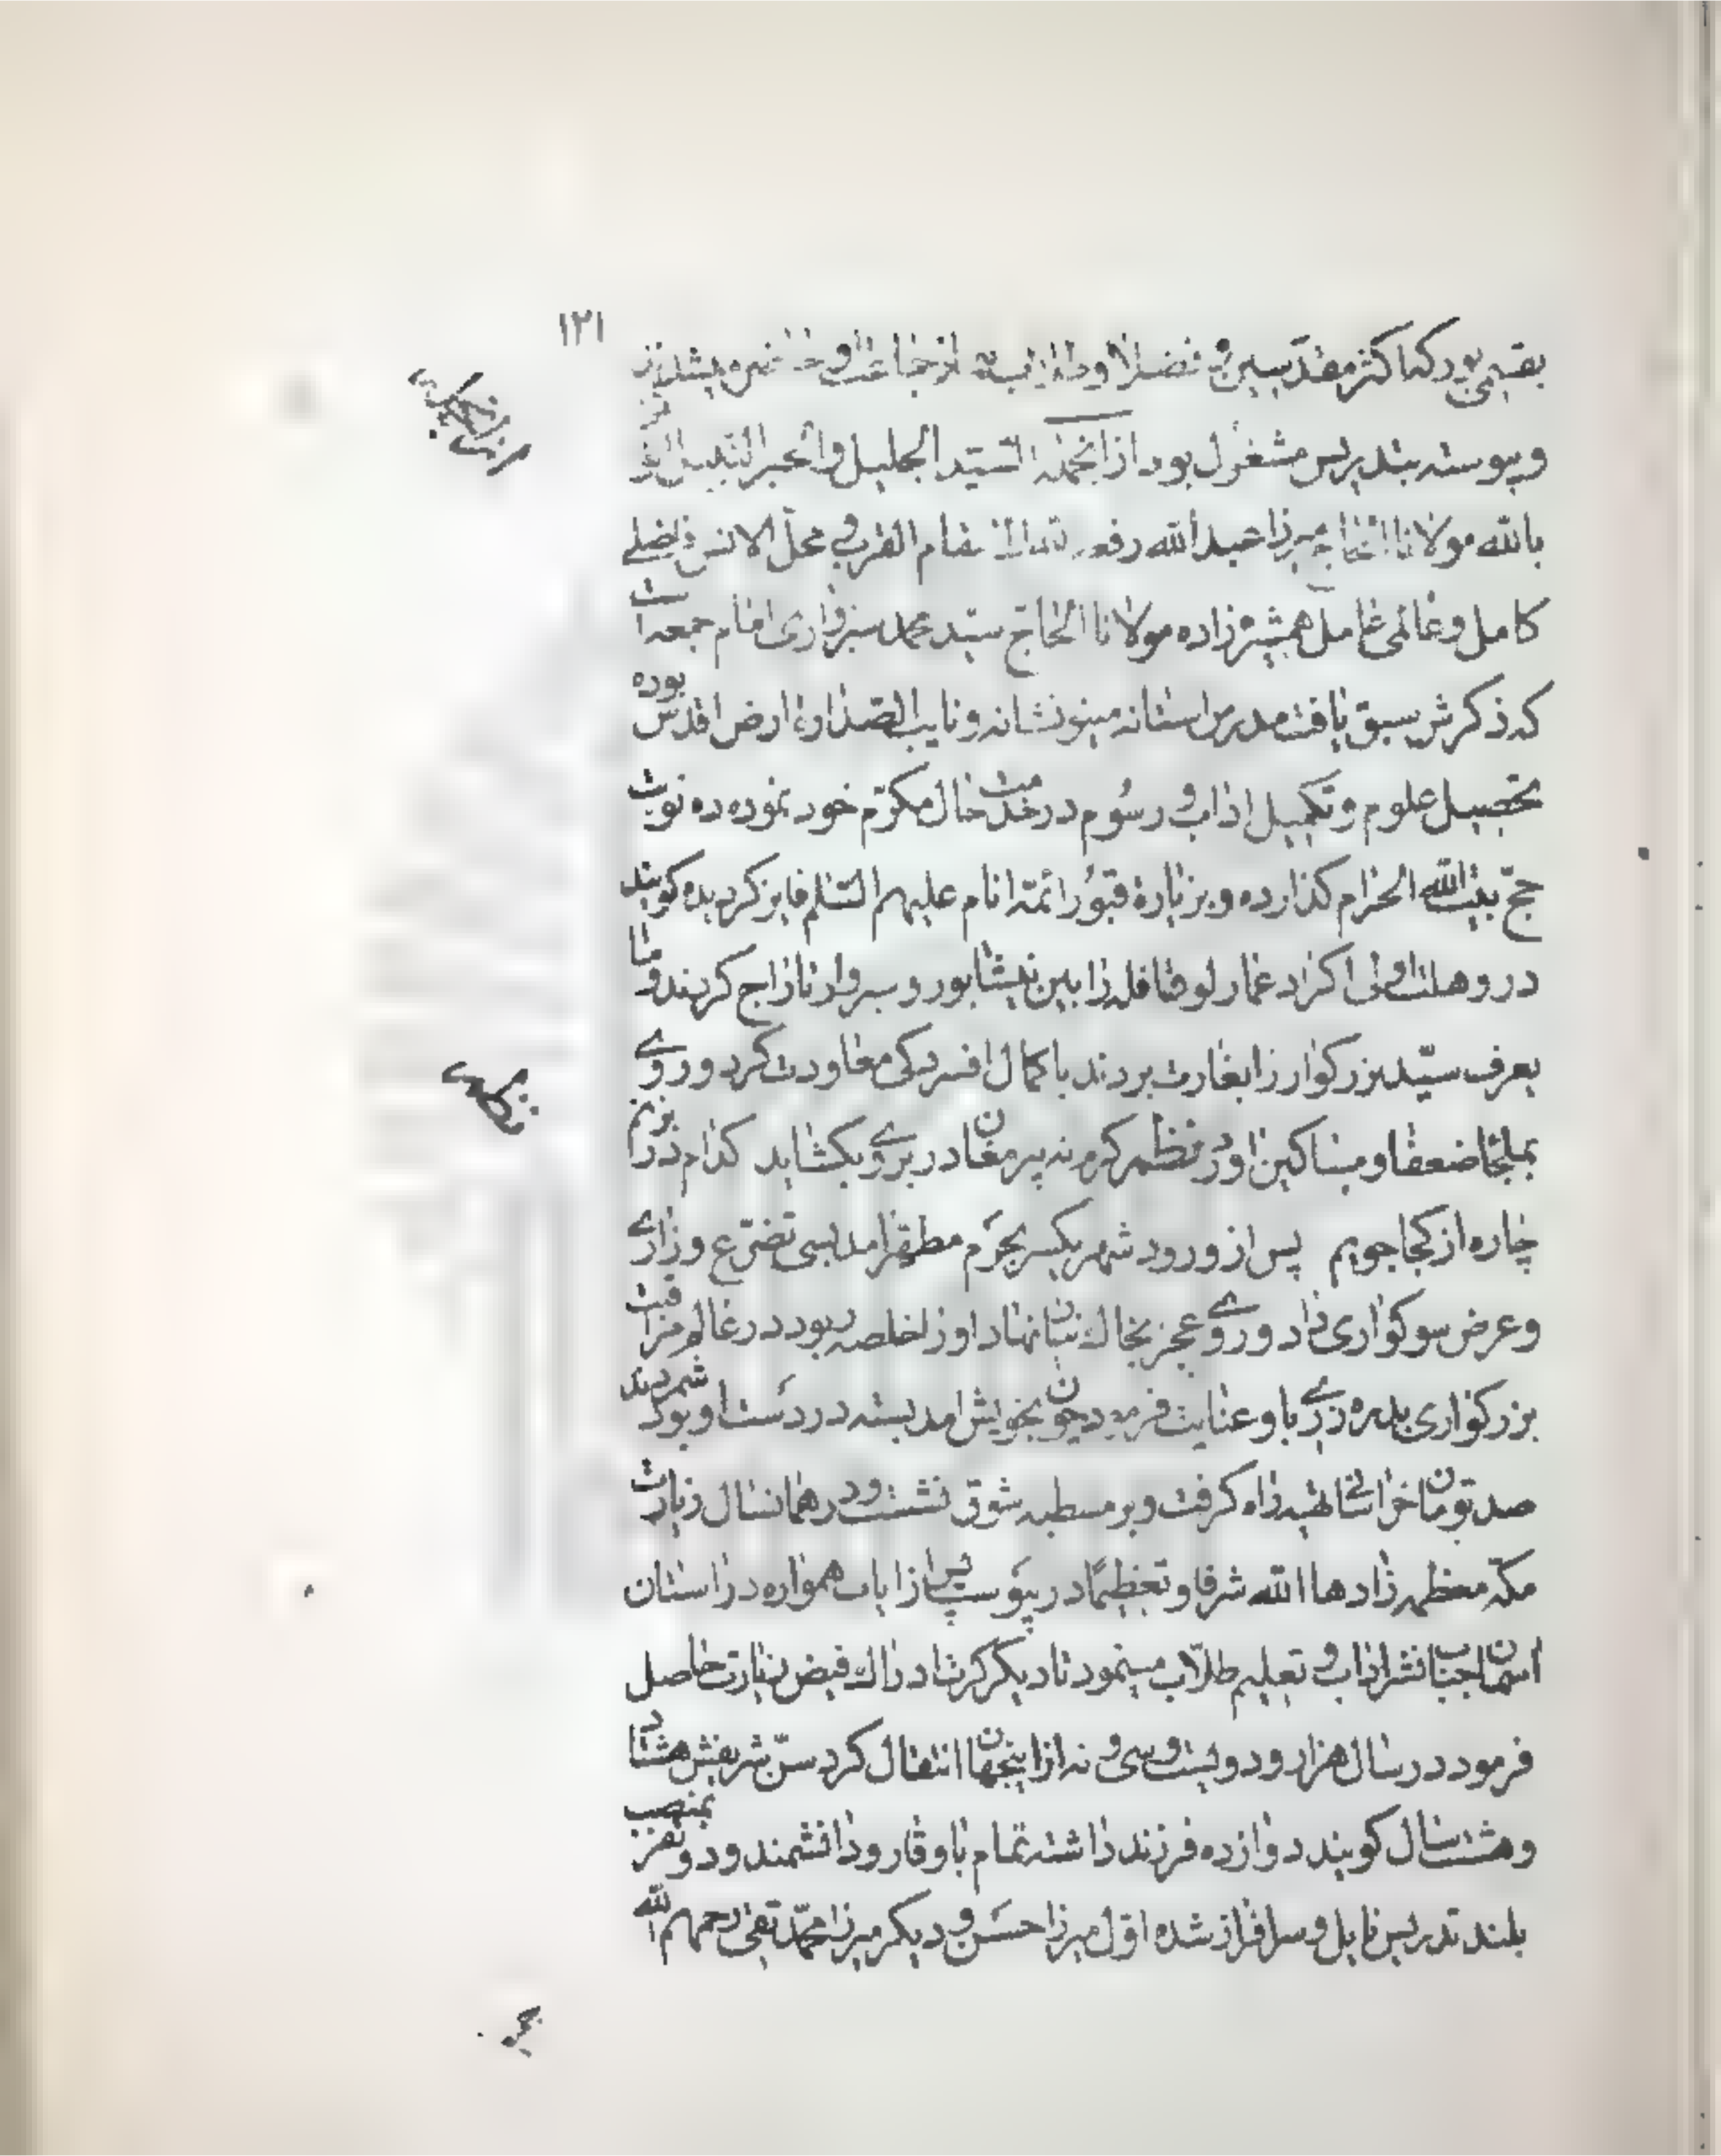 ۱۲۱
بقسمی بود که اکثر مقدّسین و فضلا و طلاب از جماعت حاضر میشدند
و پیوسته بتدریس مشغول بود از انجمله السّید الجلیل و الحبر النبیل
بالله مولانا الحاج میرزا عبدالله رفعه الله مقام القرب و محلّ الانس فاضلی
کامل و عالمی عامل همشیره زاده مولانا الحاج سیّد محمد سبزواری امام جمعه است
که ذکرش سبق یافت مدرس استانه مینو نشانه و نایب الصّداره ارض اقدس بوده
تحصیل علوم و تکمیل اداب و رسُوم در خدمت خال مکرّم خود نموده ده نوبت
حجّ بیت الله الحرام کذارده و بزیارة قبُور ائمّه انام علیهم السّلم فایز کردیده کویند
در وهلت اولی اکراد غمارلو قافله را بین نیشابور و سبزوار تاراج کردند و ما
یعرف سیّد بزرکوار را بغارت بردند با کمال افسردکی معاودت کرد و روی
بملجأ ضعفا و مساکین اورد نظم کرم نه پیر مغان در بروی بکشاید کدام در بزنم
چاره از کجا جویم پس از ورود شهر یکسر بحرَم مطهّر امد بسی تضرّع و زاری
و عرض سوکواری داد و روی عجز بخاک نیاز نهاد او را خلصه ربود در عالم مراقبت
بزرکواری بدره زری باو عنایت فرمود چون بخویش امد بسته در دست او بود شمردند
صد تومان خراسانی تهیه راه کرفت و بر مسطبه شوق نشست و در همانسال زیارت
مکّه معظمه زادها الله شرفا و تعظیمًا در پیوست پس از ایاب همواره در استان
اسمان جناب نشر اداب و تعلیم طلّاب مینمود تا دیکر کرت ادراک فیض زیارت حاصل
فرمود در سال هزار و دویست و سی و نه از اینجهان انتقال کرد سنّ شریفش هشتاد
و هشت سال کویند دوازده فرزند داشته تمام با وقار و دانشمند و دو نفر بمنصب
بلند تدریس نایل و سرافراز شده اوّل میرزا حسَن و دیکر میرزا محمّد تقی رحمهم الله
نظم